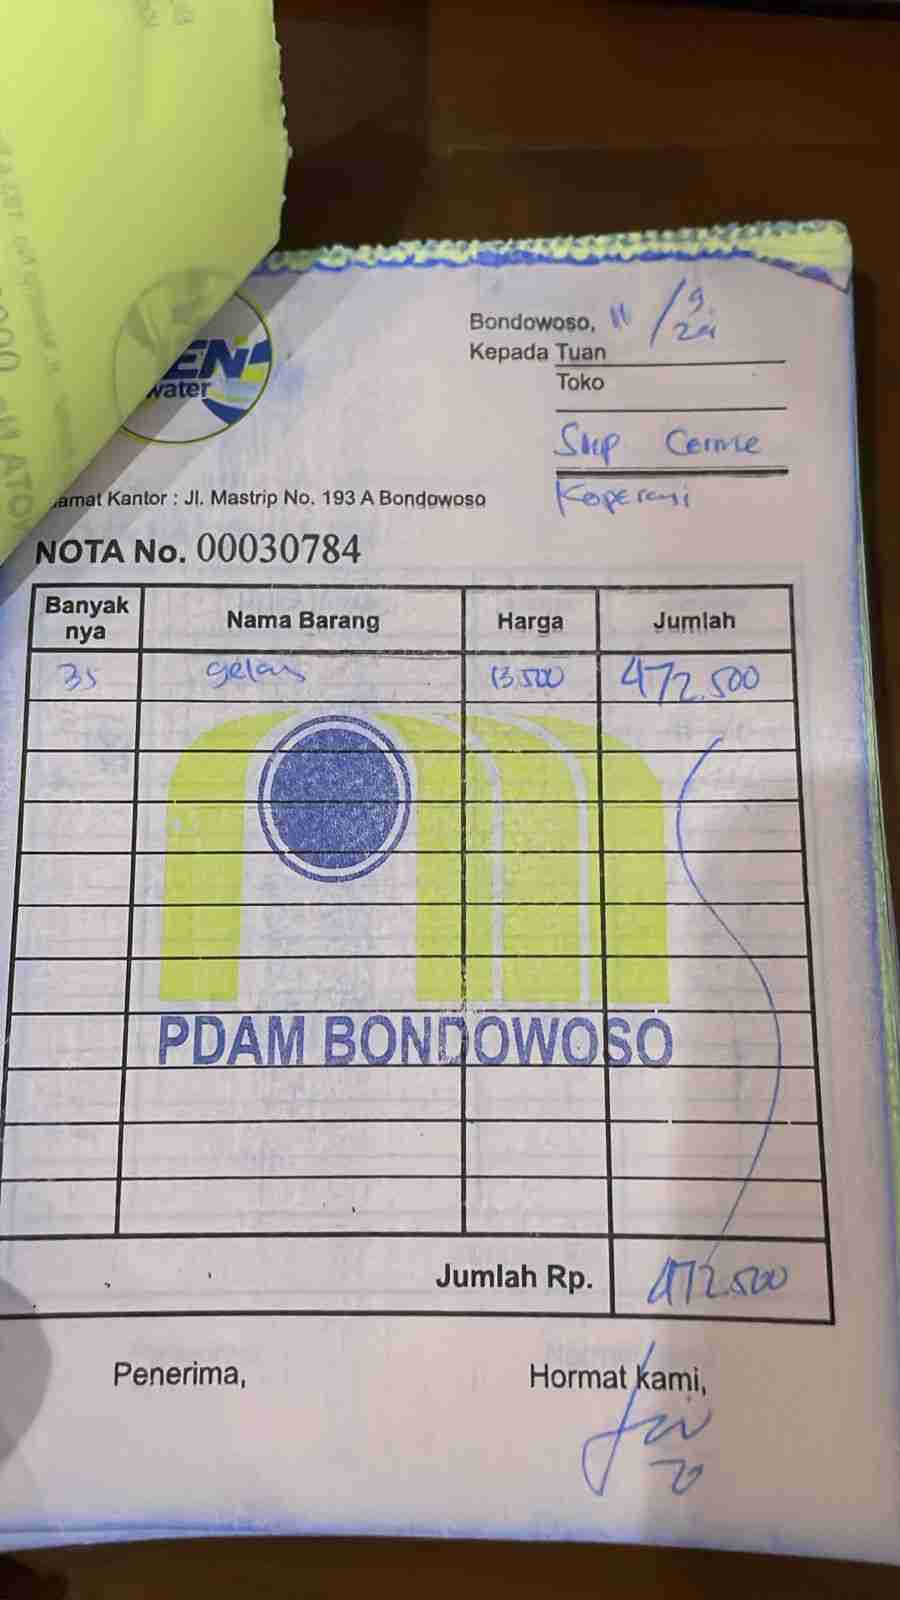 EN
water
Bondowoso, 11/9.24
Kepada Tuan
Toko
Smp Cerme
Koperasi
amat Kantor : Jl. Mastrip No. 193 A Bondowoso
NOTA No. 00030784
Banyak nya Nama Barang Harga Jumlah
35 gelas 13.500 472.500
PDAM BONDOWOSO
Jumlah Rp. 472.500
Penerima, Hormat kami,